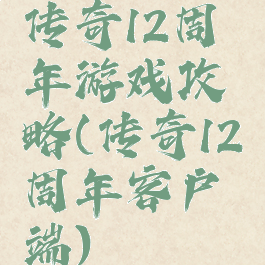 传奇12周
年游戏攻
略(传奇12
周年客户
端)